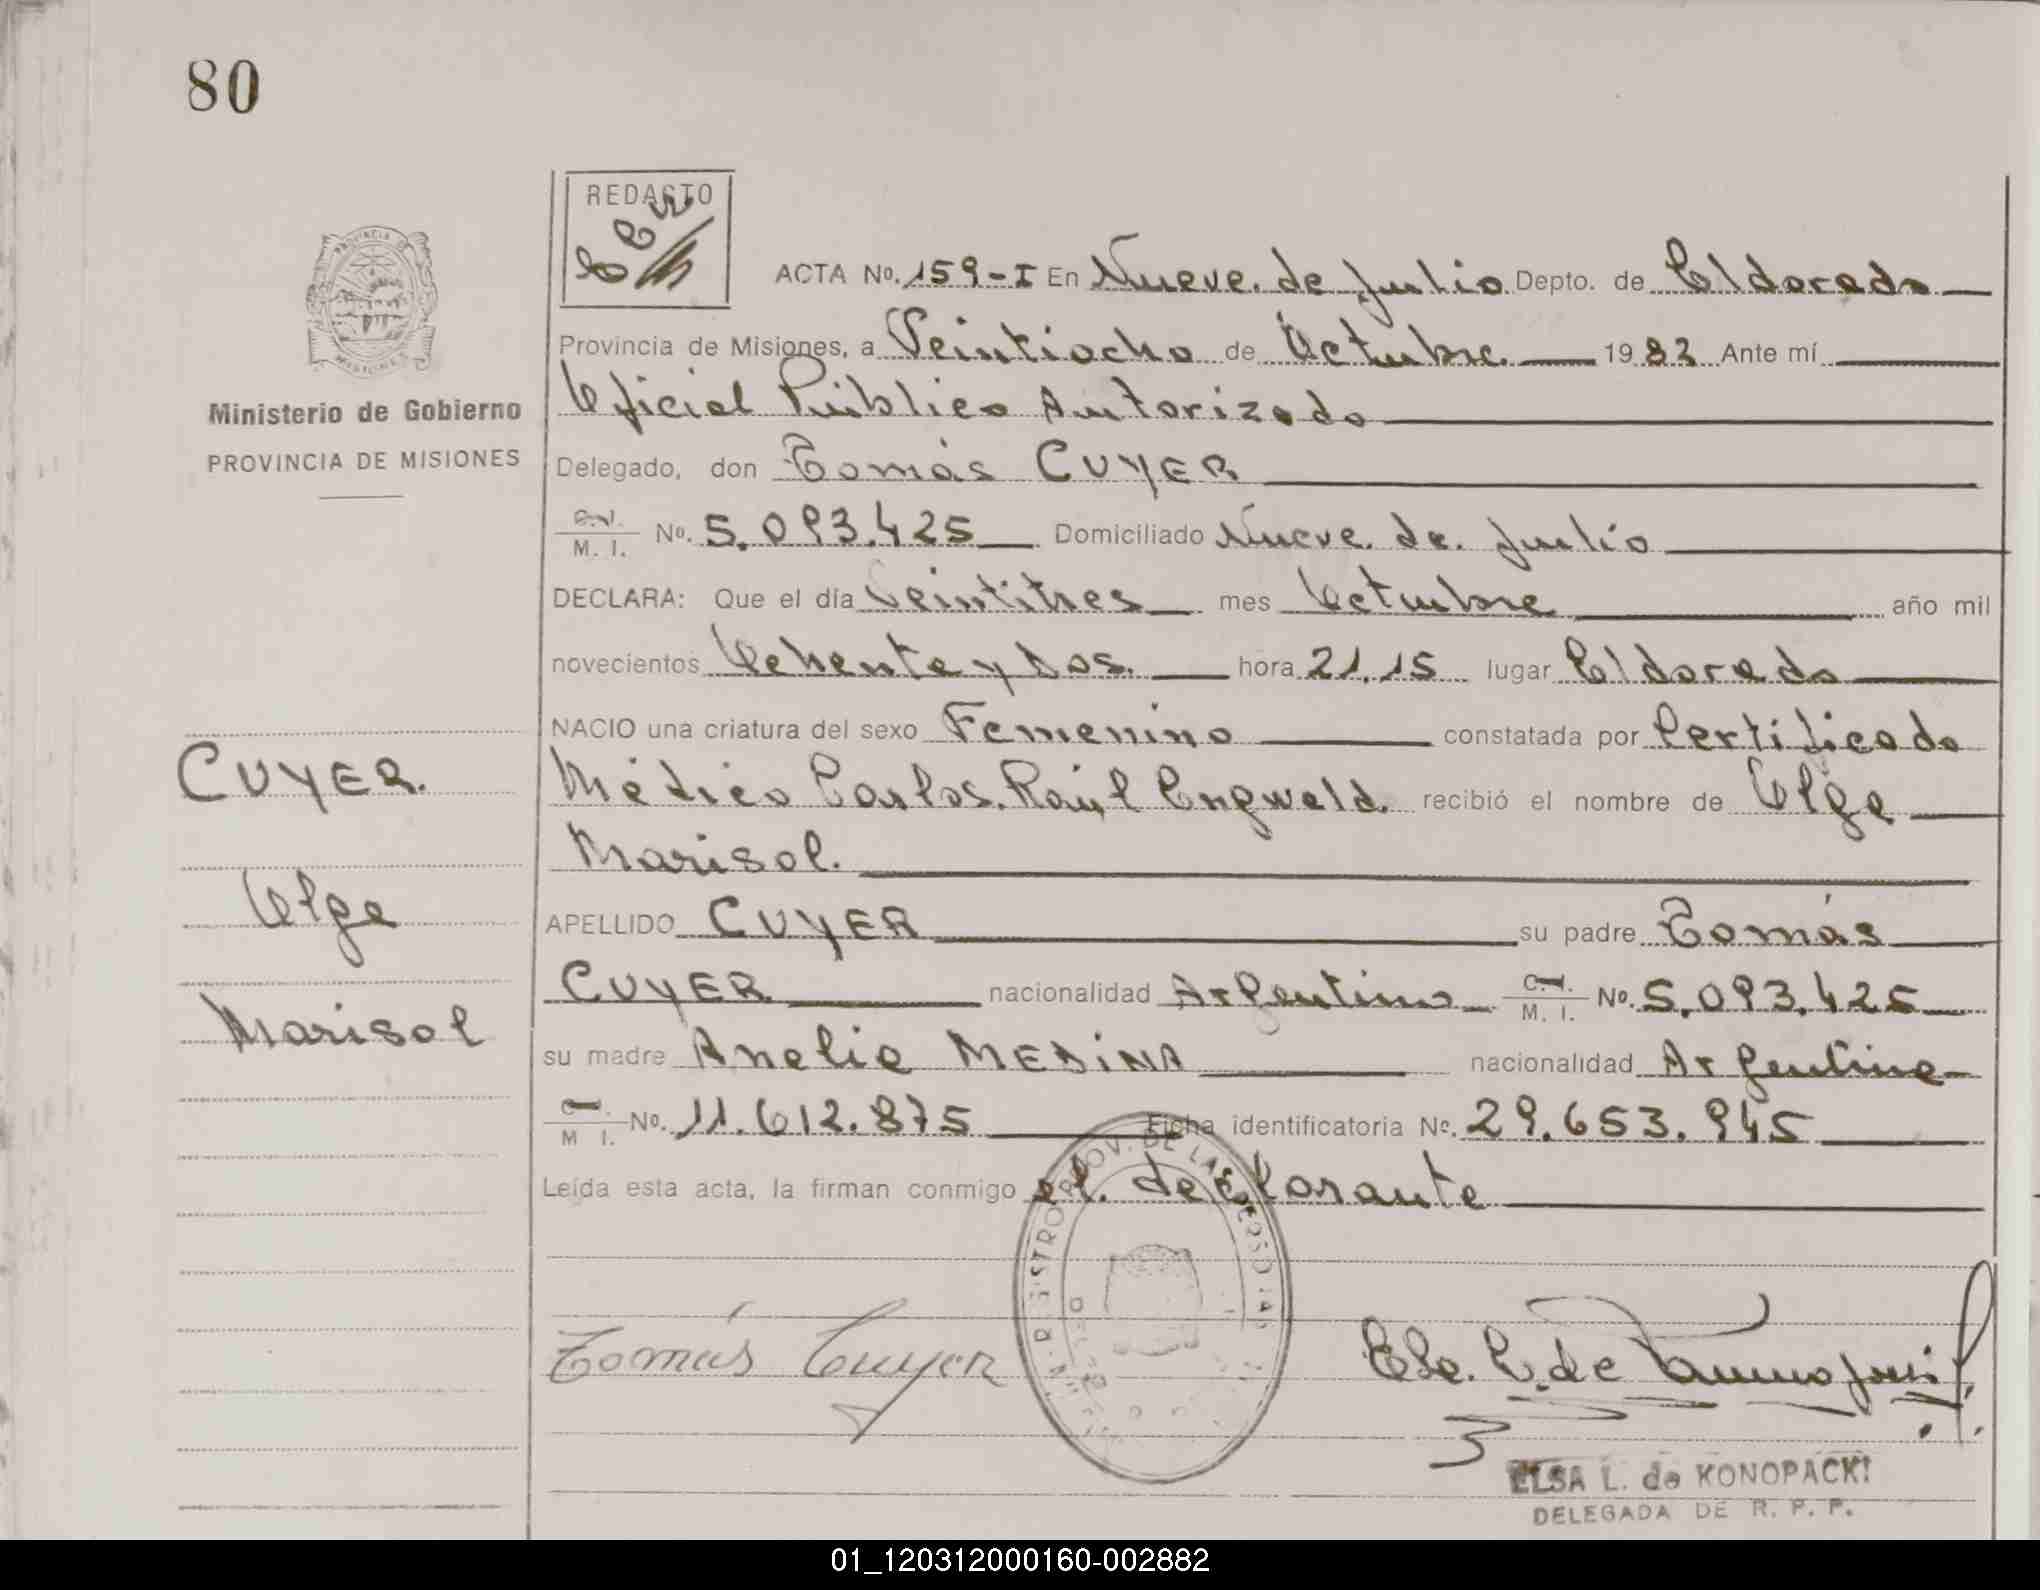 80
REDACTO
ACTA No. 159-I En Nueve de Julio Depto. de Eldorado
Provincia de Misiones, a Veintiocho de Octubre 1982 Ante mí
Oficial Público Autorizado
Delegado, don Tomás CUYER
Ministerio de Gobierno
PROVINCIA DE MISIONES
M. I. No. 5.093.425 Domiciliado Nueve de Julio
DECLARA: Que el día Veintitres mes Octubre año mil
novecientos Ochenta y Dos. hora 21,15 lugar Eldorado
NACIO una criatura del sexo Femenino constatada por Certificado
Médico Carlos Raúl Engwald. recibió el nombre de Olga
Marisol.
APELLIDO CUYER su padre Tomás
CUYER nacionalidad Argentino M. I. No. 5.093.425
su madre Anelia MEDINA nacionalidad Argentina
M I. No. 11.612.875 Ficha identificatoria No. 29.653.945
Leída esta acta, la firman conmigo el declarante
CUYER.
Olga
Marisol
Tomás Cuyer
ELSA L. de KONOPACKI
DELEGADA DE R. P. P.
01_120312000160-002882